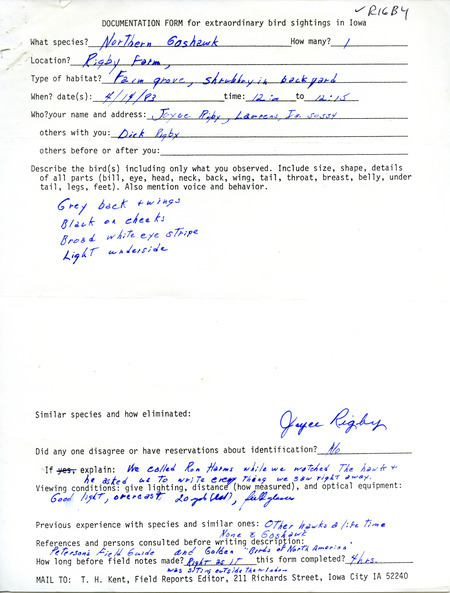 ✓ RIGBY
DOCUMENTATION FORM for extraordinary bird sightings in Iowa
What species? Northern Goshawk How many? 1
Location? Rigby Farm,
Type of habitat? Farm grove, shrubbery in backyard
When? date(s): 4/14/83 time: 12:00 to 12:15
Who?your name and address: Joyce Rigby, Laurens, Ia. 50554
others with you: Dick Rigby
others before or after you:
Describe the bird(s) including only what you observed. Include size, shape, details
of all parts (bill, eye, head, neck, back, wing, tail, throat, breast, belly, under
tail, legs, feet). Also mention voice and behavior.
Grey back + wings
Black on cheeks
Broad white eye stripe
Light underside
Similar species and how eliminated:
Joyce Rigby
Did any one disagree or have reservations about identification? No
If yes, explain: We called Ron Harms while we watched The hawk +
he asked us to write every thing we saw right away.
Viewing conditions: give lighting, distance (how measured), and optical equipment:
Good light, overcast 20 yds
Previous experience with species and similar ones: Other hawks a life time
None & Goshawk
References and persons consulted before writing description:
Peterson's Field Guide and Golden "Birds of North America"
How long before field notes made? Right as it this form completed? 4 hrs.
was sitting outside the window
MAIL TO: T. H. Kent, Field Reports Editor, 211 Richards Street, Iowa City IA 52240